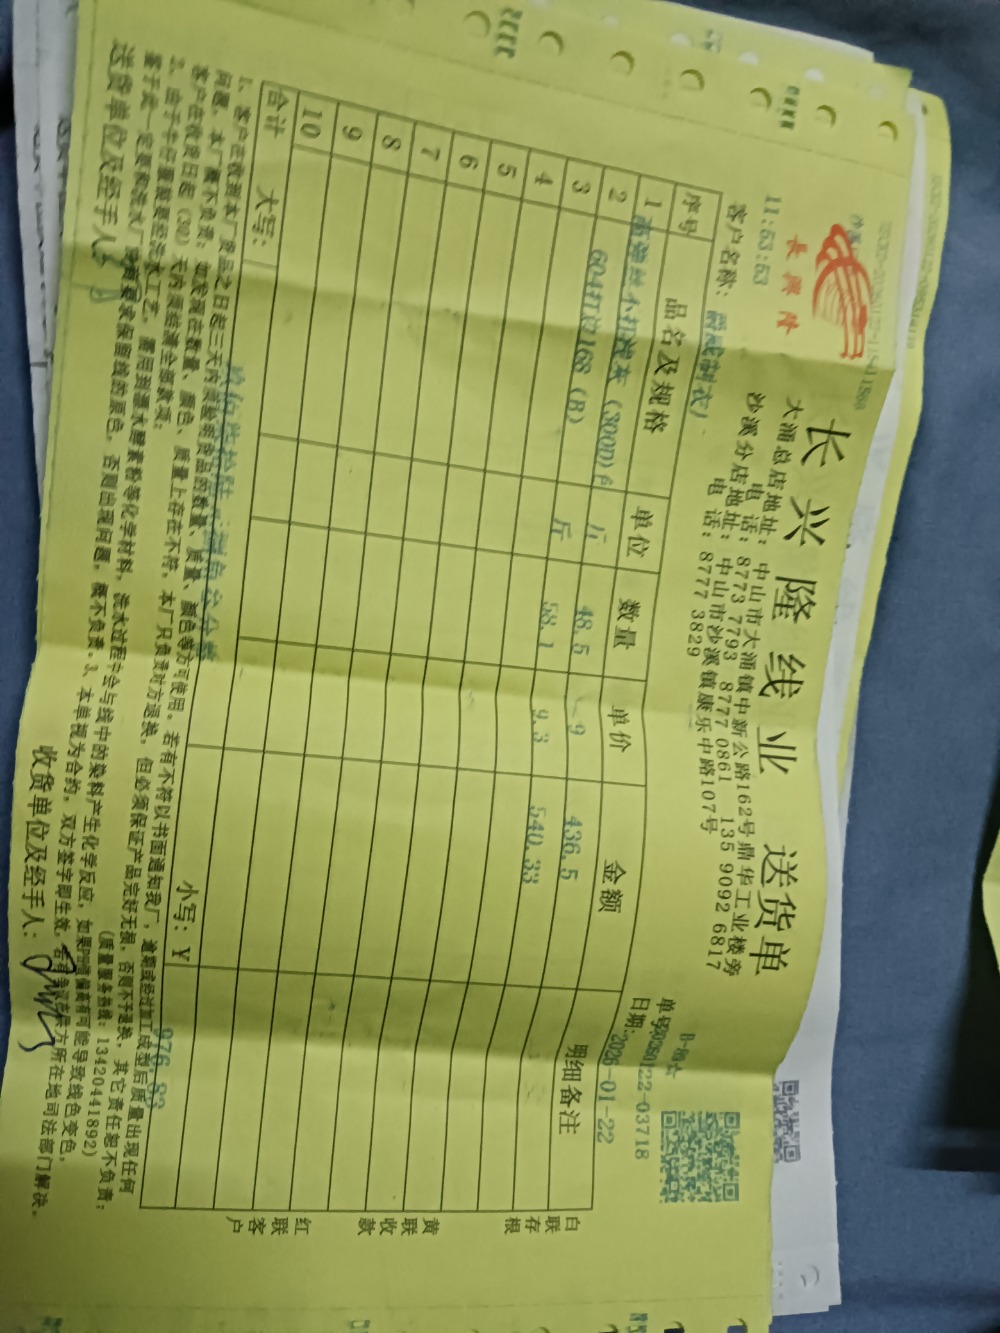 長興隆
长兴隆线业 送货单
大涌总店地址：中山市大涌镇中新公路162号鼎华工业楼旁
电话：8773 7793 8777 0861 135 9092 6817
沙溪分店地址：中山市沙溪镇康乐中路107号
电话：8777 3829
11:53:53
单号:20260122-03718
客户名称：制衣厂
日期:2026-01-22
序号 品名及规格 单位 数量 单价 金额 明细备注
1 (300D) 斤 48.5 9 436.5
2 604打边168 (B) 斤 58.1 9.3 540.33
3
4
5
6
7
8
9
10
合计 大写： 小写：¥ 976.83
白联存根
黄联收款
红联客户
1、客户在收到本厂货品之日起三天内须检验货品的数量、质量、颜色等方可使用。若有不符以书面通知我厂，逾期或经过加工成型后质量出现任何
问题，本厂概不负责；如发现在数量、颜色、质量上存在不符，本厂只负责对方退换，但必须保证产品完好无损，否则不予退换，其它责任恕不负责；
客户在收货日起（30）天内须结清全部款项； (质量服务热线：13420441892)
2、由于牛仔服装要经洗水工艺，需用到漂水酵素粉等化学材料，洗水过程中会与线中的染料产生化学反应，如果PH值偏高有可能导致线色变色，
鉴于此一定要和洗水厂要求保留线的原色，否则出现问题，概不负责。3、本单视为合约，双方签字即生效，若有争议在乐方所在地司法部门解决。
送货单位及经手人： 收货单位及经手人：